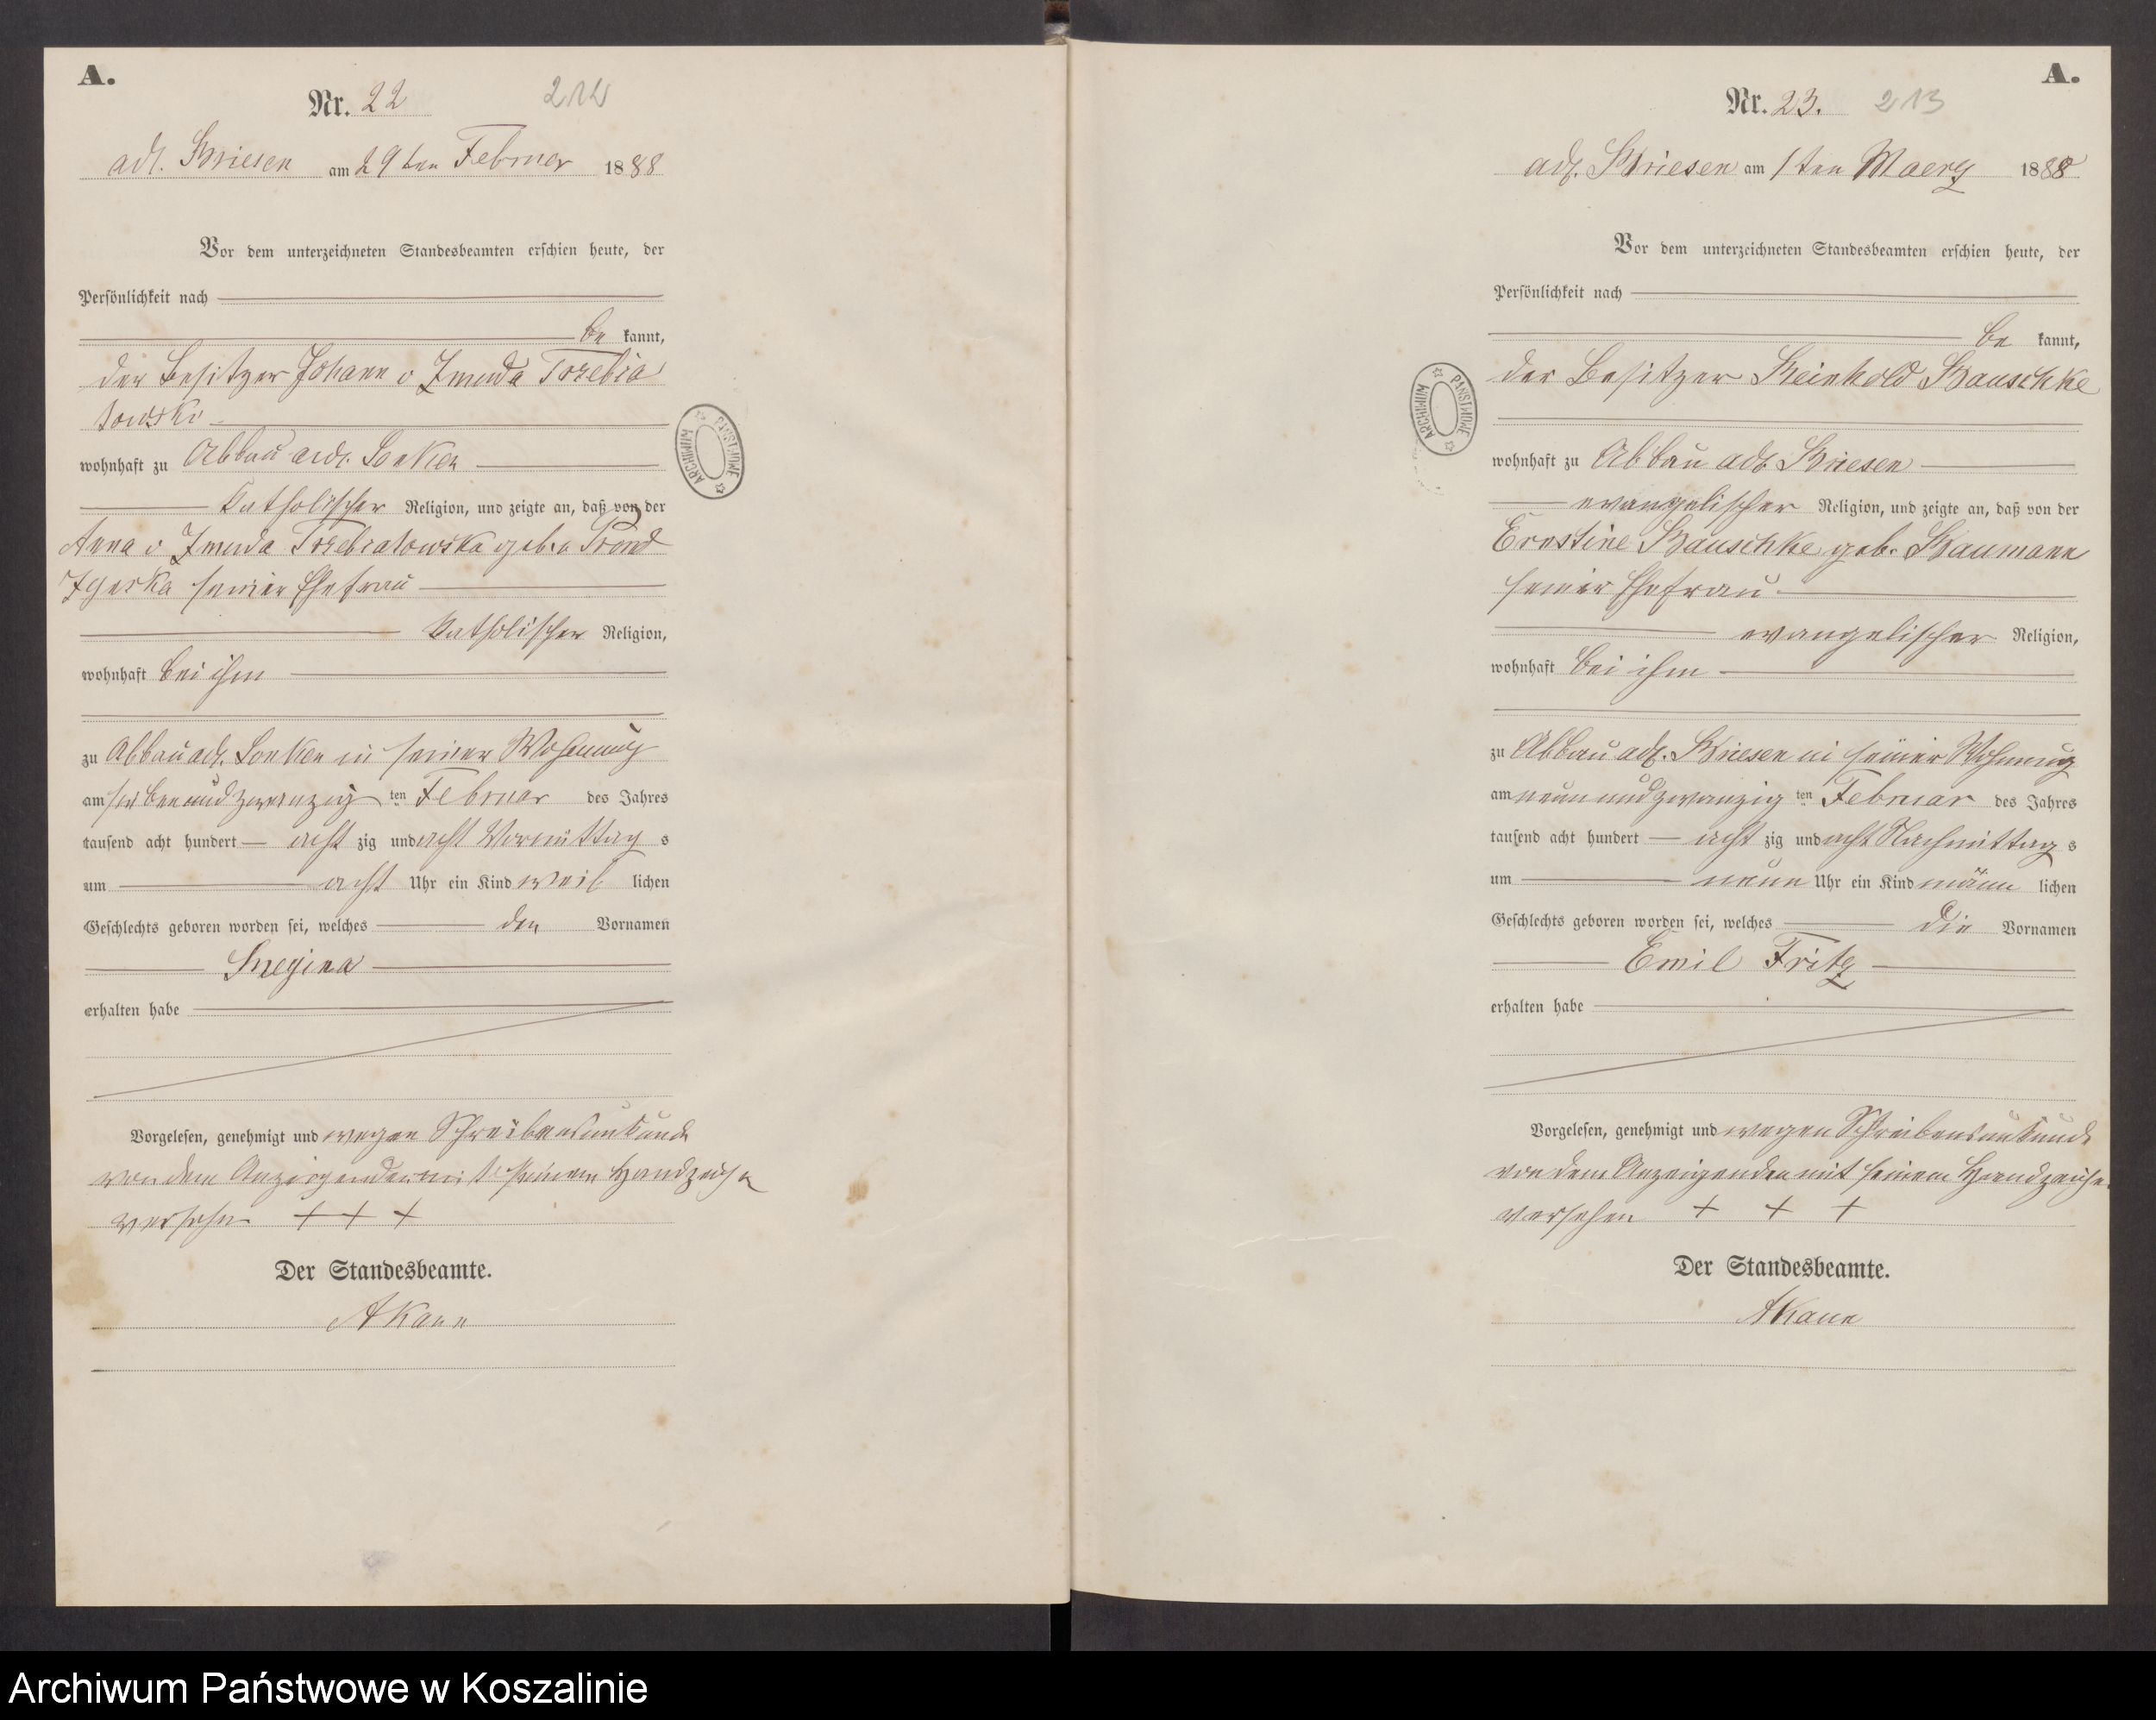 A.
Nr. 22
212
adl. Briesen am 29ten Februar 1888
Vor dem unterzeichneten Standesbeamten erschien heute, der
Persönlichkeit nach
be kannt,
der Besitzer Johann v Zmuda Trzebia
towski
wohnhaft zu Abbau adl. Sonken
katholischer Religion, und zeigte an, daß von der
Anna v Zmuda Trzebiatowska geb. v Prond
seiner Ehefrau
katholischer Religion,
wohnhaft bei ihm
zu Abbau adl. Sonken in seiner Wohnung
am siebenundzwanzig ten Februar des Jahres
tausend acht hundert acht zig und acht Vormittag s
um acht Uhr ein Kind weib lichen
Geschlechts geboren worden sei, welches den Vornamen
Regina
erhalten habe
Vorgelesen, genehmigt und wegen Schreibensunkunde
von dem Anzeigenden mit seinem Handzeichen
versehen + + +
Der Standesbeamte.
A Kann
A.
Nr. 23.
213
adl. Briesen am 1ten Maerz 1888
Vor dem unterzeichneten Standesbeamten erschien heute, der
Persönlichkeit nach
be kannt,
der Besitzer Reinhold Bauschke
wohnhaft zu Abbau adl Briesen
evangelischer Religion, und zeigte an, daß von der
Ernstine Bauschke geb. Baumann
seiner Ehefrau
evangelischer Religion,
wohnhaft bei ihm
zu Abbau adl. Briesen in seiner Wohnung
am neunundzwanzig ten Februar des Jahres
tausend acht hundert acht zig und acht Nachmittag s
um neun Uhr ein Kind männ lichen
Geschlechts geboren worden sei, welches die Vornamen
Emil Fritz
erhalten habe
Vorgelesen, genehmigt und wegen Schreibensunkunde
von dem Anzeigenden mit seinem Handzeichen
versehen + + +
Der Standesbeamte.
A Kann
ARCHIWUM PAŃSTWOWE
ARCHIWUM PAŃSTWOWE
Archiwum Państwowe w Koszalinie